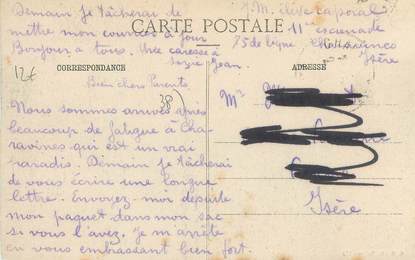 Demain Je tâcherai de
mettre mon courrier à jour
Bonjour à tous. Une caresse à
Jean.
J.M. élève caporal
11e escouade
75 de ligne
Isère
CARTE POSTALE
CORRESPONDANCE
ADRESSE
12€
38
Bien chers Parents
Nous sommes arrivés après
beaucoup de fatigue à Cha-
ravines qui est un vrai
paradis. Demain Je tâcherai
de vous écrire une longue
lettre. Envoyez-moi de suite
mon paquet dans mon sac
si vous l'avez. Je m'arrête
en vous embrassant bien fort.
Mr
Isère